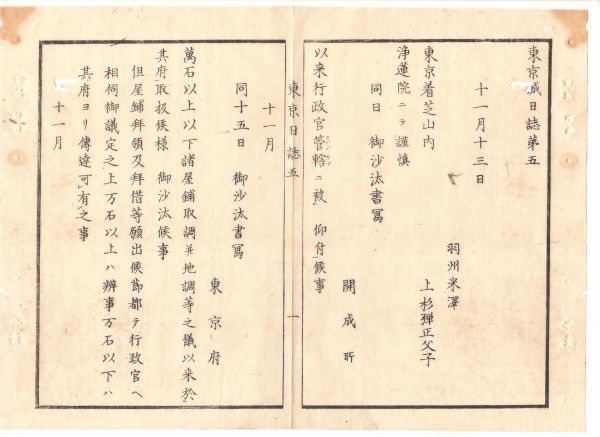 東京城日誌第五
十一月十三日
羽州米澤
上杉彈正父子
東京着芝山内
浄蓮院ニテ謹慎
同日 御沙汰書寫
開成所
以来行政官管轄ニ被 仰付候事
東京日誌五 一
十一月
同十五日 御沙汰書寫
東京府
萬石以上以下諸屋鋪取調并地調等之儀以来於
其府取扱候様 御沙汰候事
但屋鋪拜領及拜借等願出候節都テ行政官ヘ
相伺御議定之上万石以上ハ辨事万石以下ハ
其府ヨリ傳達可有之事
十一月